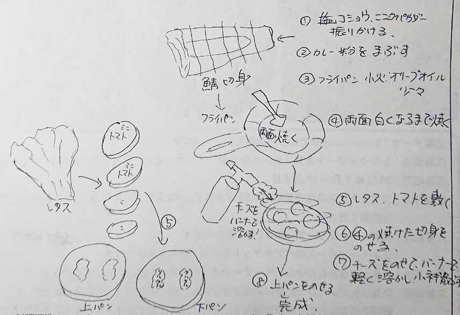 ① 塩コショウ、ニンニクパウダー
振りかける
② カレー粉をまぶす
③ フライパン 小火 オリーブオイル
少々
鯖 切身
フライパン
両面焼く
④ 両面白くなるまで焼く
ミニ
トマト
ミニ
トマト
レタス
⑤
チーズを
バーナーで
溶かす!
⑤ レタス、トマトを敷く
⑥ ④の焼けた切身を
のせる
⑦ チーズをのせて、バーナーで
軽く溶かし
⑧ 上パンをのせる
完成
上パン
下パン